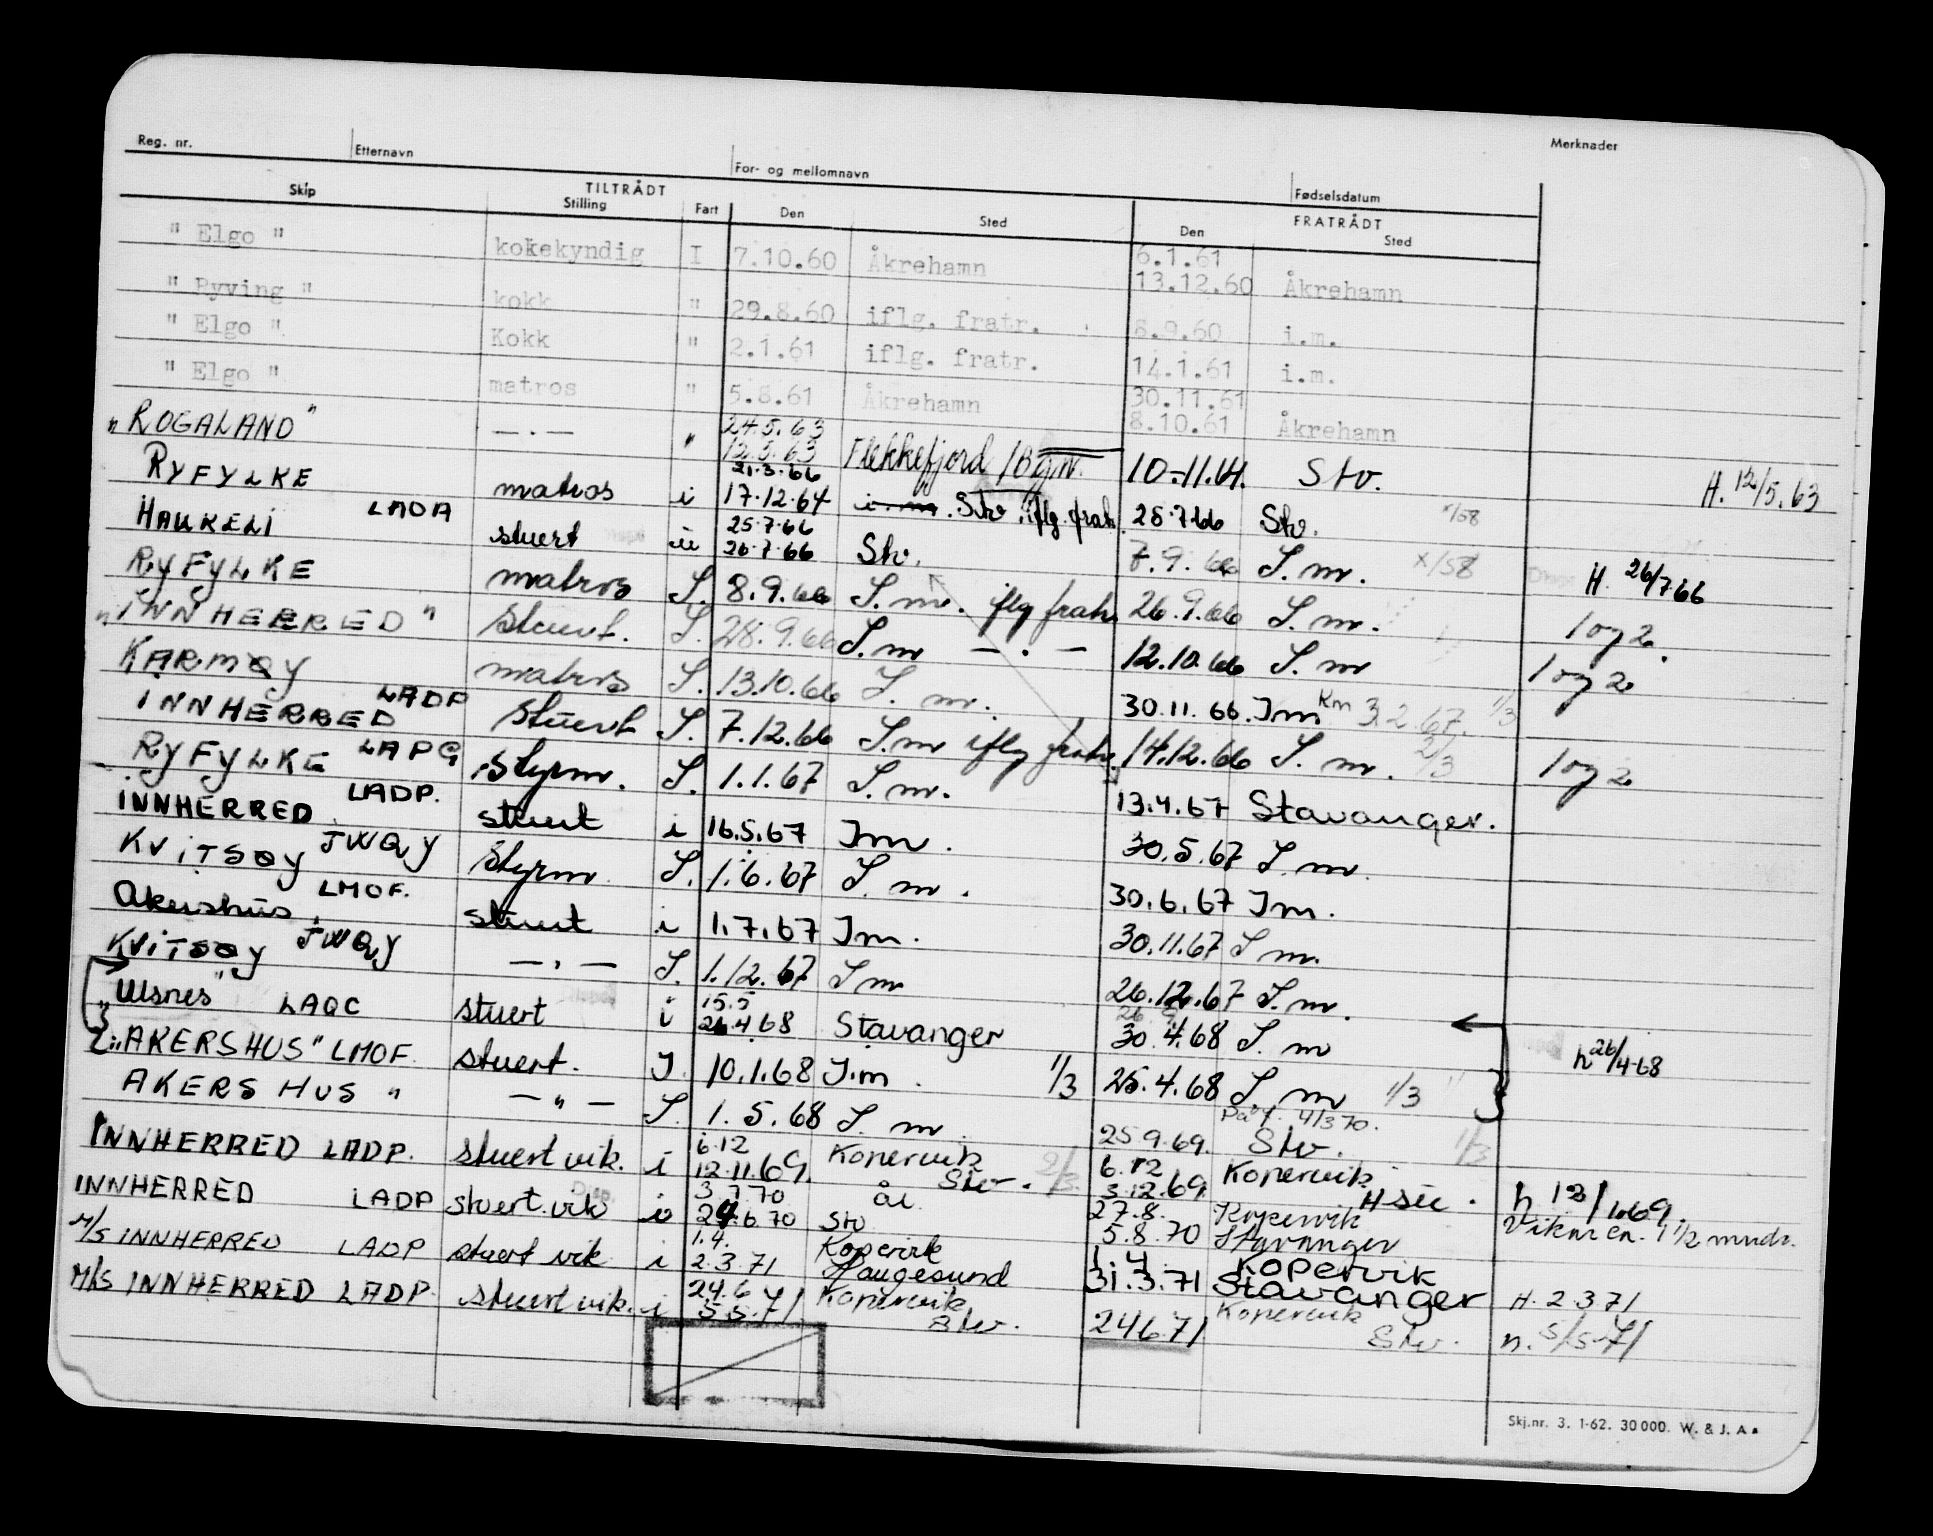 Reg. nr. Etternavn For- og mellomnavn Fødselsdatum Merknader
Skip TILTRÅDT Stilling Fart Den Sted FRATRÅDT Den Sted
" Elgo " kokekyndig I 7.10.60 Åkrehamn 6.1.61
13.12.60 Åkrehamn
" Ryving " kokk " 29.8.60 iflg. fratr. 8.9.60 i.m.
" Elgo " Kokk " 2.1.61 iflg. fratr. 14.1.61 i.m.
" Elgo " matros " 5.8.61 Åkrehamn 30.11.61
8.10.61 Åkrehamn
" ROGALAND " — . — " 24.5.63
13.5.63 Flekkefjord / 10.-11.61. Stv. H. 12/5.63
21.3.66
RYFYLKE matros i 17.12.64 Stv. iflg. fratr. 25.7.66 Stv. x/58
HAUKELI LADA stuert ii 25.7.66
26.7.66 Stv. 7.9.66 I.m. x/58 H. 26/7 66
RYFYLKE matros I. 8.9.66 I.m. iflg fratr 26.9.66 I.m. 1 og 2.
" INNHERRED " Stuert. I. 28.9.66 I.m — . — 12.10.66 I.m 1 og 2
KARMØY matros I. 13.10.66 I.m. 30.11.66. Im Km 3.2.67. 1/3
INNHERRED LADP Stuert I. 7.12.66 I.m iflg fratr. 14.12.66 I.m. 2/3 1 og 2
RYFYLKE LAPG Styrm. I. 1.1.67 I.m. 13.4.67 Stavanger.
INNHERRED LADP. stuert i 16.5.67 Im. 30.5.67 I.m.
KVITSØY JWQY Styrm. I. 1.6.67 I.m. 30.6.67 Im.
Akershus. LMOF. stuert i 1.7.67 Im. 30.11.67 I.m.
KVITSØY JWQY — . — I. 1.12.67 I m 26.12.67 I.m.
" Ulsnes " LAQC stuert i 15.5
26.4.68 Stavanger 30.4.68 I.m h 26/4-68
" AKERSHUS " LMOF. stuert. I. 10.1.68 I.m. 1/3 25.4.68 I.m 1/3
AKERSHUS " — " — I. 1.5.68 I.m. 25.9.69. Stv. 1/3
4/3 70.
INNHERRED LADP. stuert vik. i 6.12 Kopervik 6.12 Kopervik
12.11.69. Stv. 2/3 3.12.69. H sie. h 12/11.69.
INNHERRED LADP stuert.vik i 3.7.70 27.8. Kopervik Vikar ca. 1 1/2 mndr.
24.6.70 Stv 5.8.70 Stavanger
M/S INNHERRED LADP stuert vik i 1.4. Kopervik 1.4 Kopervik
2.3.71 Haugesund 31.3.71 Stavanger H. 2.3 71
M/S INNHERRED LADP. stuert vik. i 24.6 Kopervik Kopervik
5.5.71 Stv. 24.6.71 Stv. n. 5/5-71
Skj.nr. 3. 1-62. 30 000. W. & J. A s